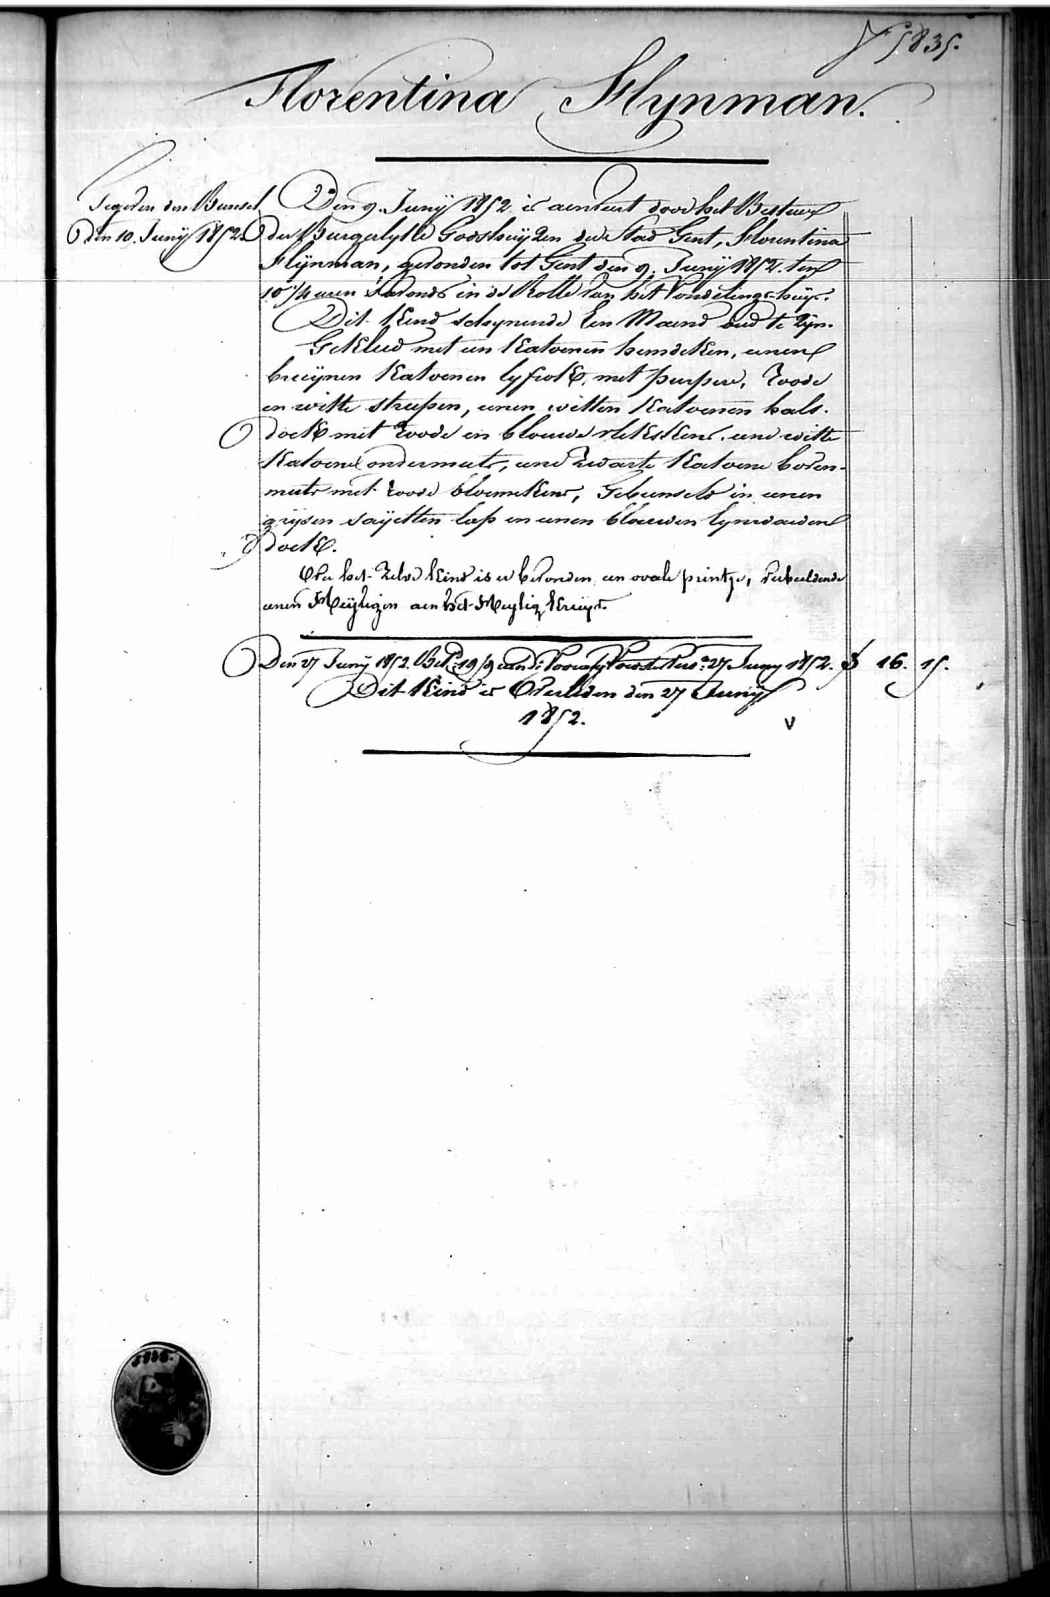 N° 5835.
Florentina Flynman.
Gegeven den Bunsel
den 10. Junij 1852.
Den 9. Junij 1852 is aenveert door het Bestuer
der Burgerlyke Godshuijzen der Stad Gent, Florentina
Flijnman, gevonden tot Gent den 9. Junij 1852. ten
10 1/4 uren s'avonds in de Rolle van het Vondelings-huijs.
Dit Kind schynende Een Maend oud te zyn.
Gekleed met een Katoenen hemdeken, eenen
bruijnen Katoenen lyfrok, met purpere, roode
en witte streepen, eenen witten Katoenen hals-
doek met roode en blauwe vlekskens, eene witte
Katoene ondermuts, eene zwarte Katoene boven-
muts met roode bloemekens, Gebunseld in eenen
grijsen saijetten lap en eenen blauwen lynwaeden
doek.
Over het zelve Kind is er bevonden een ovale printje, verbeeldende
eenen Heijligen aen het Heylig Kruijs.
Den 27 Junij 1852. 19/9 27 Juny 1852. 16. 15.
Dit Kind is Overleden den 27 Junij
1852.
V
5835.